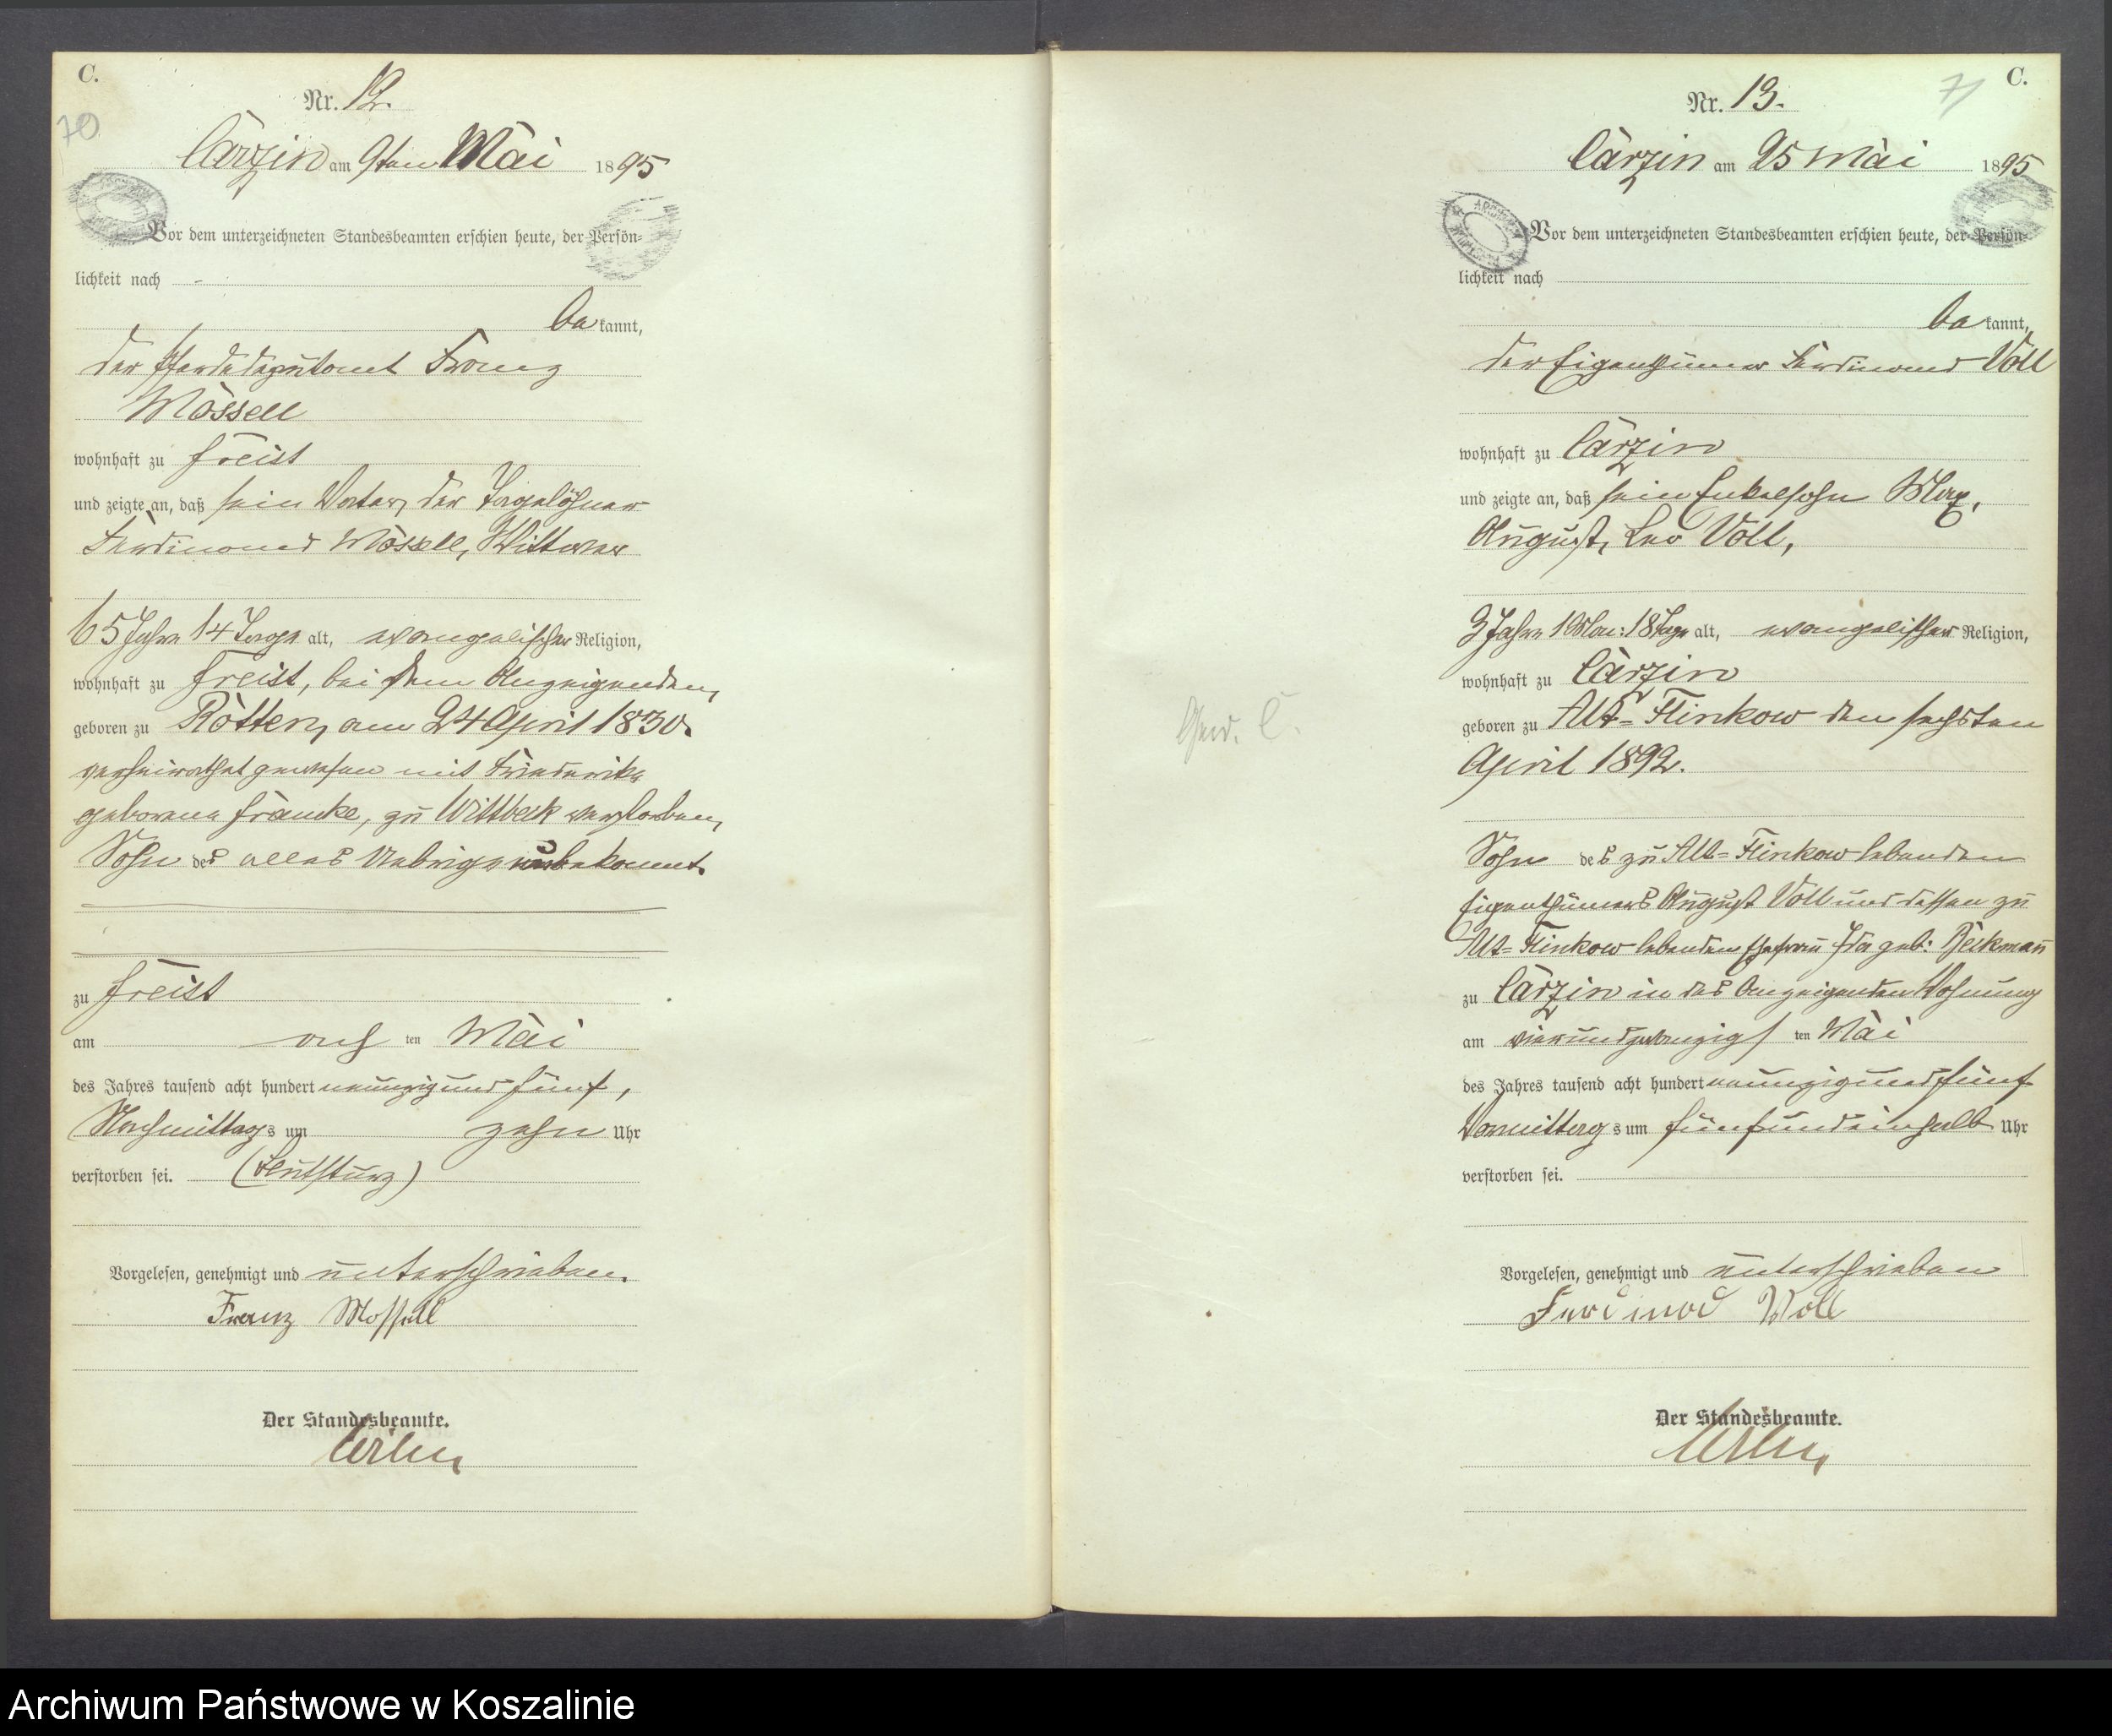 C.
70
Nr. 12.
Carzin am 9ten Mai 1895
Vor dem unterzeichneten Standesbeamten erschien heute, der Persön-
lichkeit nach -
be kannt,
der Pferdedeputant Franz
Mossell
wohnhaft zu Freist
und zeigte an, daß sein Vater, der Tagelöhner
Ferdinand Mossell, Wittwer
65 Jahre 14 Tage alt, evangelischer Religion,
wohnhaft zu Freist, bei dem Anzeigenden,
geboren zu Rotten, am 24 April 1830.
verheirathet gewesen mit Friederike
geborene Francke, zu Wittbeck verstorben,
Sohn des alles Uebrige unbekannt.
zu Freist
am acht ten Mai
des Jahres tausend acht hundert neunzig und fünf,
Nachmittags um zehn Uhr
verstorben sei.
Vorgelesen, genehmigt und unterschrieben.
Franz Mossell
Der Standesbeamte.
C.
71
Nr. 13.
Carzin am 25 Mai 1895
ARCHIWUM
Vor dem unterzeichneten Standesbeamten erschien heute, der Persön-
lichkeit nach
be kannt,
der Eigenthümer Ferdinand Voll
wohnhaft zu Carzin
und zeigte an, daß sein Enkelsohn Max,
August, Leo Voll,
3 Jahre 1 Mon: 18 Tage alt, evangelischer Religion,
wohnhaft zu Carzin
geboren zu Alt-Flinkow den sechsten
April 1892.
Sohn des zu Alt-Flinkow lebenden
Eigenthümers August Voll und dessen zu
Alt-Flinkow lebenden Ehefrau Ida geb: Beckmann
zu Carzin in des Anzeigenden Wohnung
am vierundzwanzigs ten Mai
des Jahres tausend acht hundert neunzig und fünf
Vormittags um fünfundeinhalb Uhr
verstorben sei.
Vorgelesen, genehmigt und unterschrieben
Ferdinad Voll
Der Standesbeamte.
Archiwum Państwowe w Koszalinie